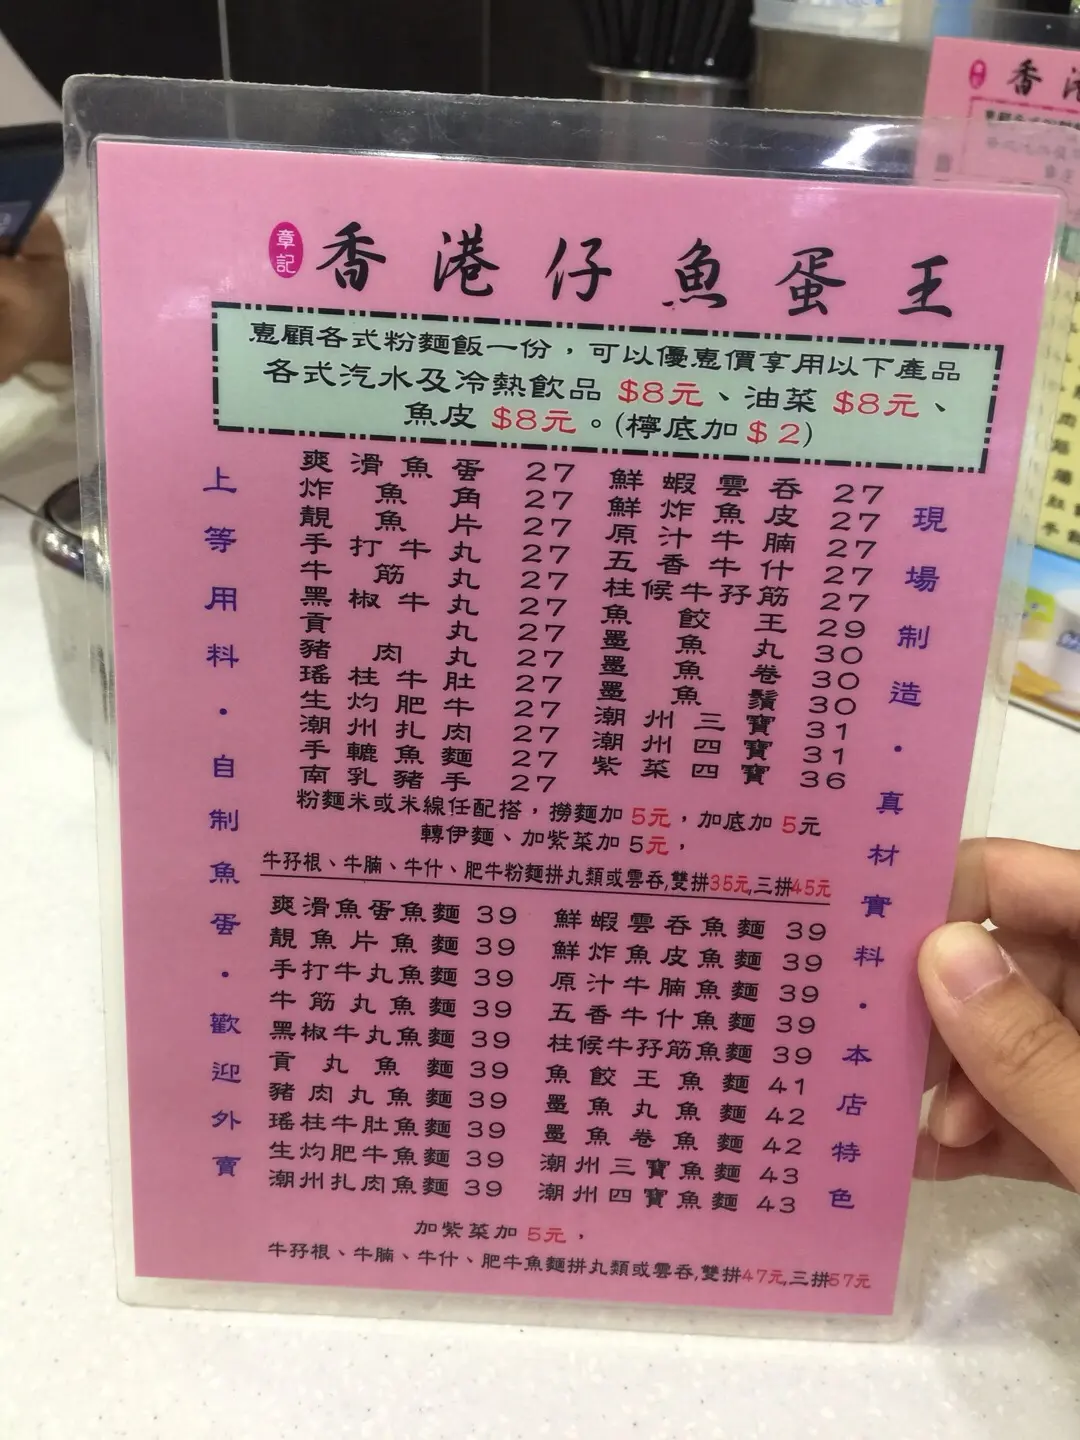 章記 香港仔魚蛋王
惠顧各式粉麵飯一份，可以優惠價享用以下產品
各式汽水及冷熱飲品 $8元、油菜 $8元、
魚皮 $8元。(檸底加 $2)
上等用料·自制魚蛋·歡迎外賣
爽滑魚蛋 27
炸魚角 27
靚魚片 27
手打牛丸 27
牛筋丸 27
黑椒牛丸 27
貢丸 27
豬肉丸 27
瑤柱牛肚 27
生灼肥牛 27
潮州扎肉 27
手轆魚麵 27
南乳豬手 27
鮮蝦雲吞 27
鮮炸魚皮 27
原汁牛腩 27
五香牛什 27
柱候牛孖筋 27
魚餃王 29
墨魚丸 30
墨魚卷 30
墨魚鬚 30
潮州三寶 31
潮州四寶 31
紫菜四寶 36
粉麵米或米線任配搭，撈麵加 5元，加底加 5元
轉伊麵、加紫菜加 5元，
牛孖根、牛腩、牛什、肥牛粉麵拼丸類或雲吞,雙拼35元,三拼45元
爽滑魚蛋魚麵 39
靚魚片魚麵 39
手打牛丸魚麵 39
牛筋丸魚麵 39
黑椒牛丸魚麵 39
貢丸魚麵 39
豬肉丸魚麵 39
瑤柱牛肚魚麵 39
生灼肥牛魚麵 39
潮州扎肉魚麵 39
鮮蝦雲吞魚麵 39
鮮炸魚皮魚麵 39
原汁牛腩魚麵 39
五香牛什魚麵 39
柱候牛孖筋魚麵 39
魚餃王魚麵 41
墨魚丸魚麵 42
墨魚卷魚麵 42
潮州三寶魚麵 43
潮州四寶魚麵 43
加紫菜加 5元，
牛孖根、牛腩、牛什、肥牛魚麵拼丸類或雲吞,雙拼47元,三拼57元
現場制造·真材實料·本店特色
香港